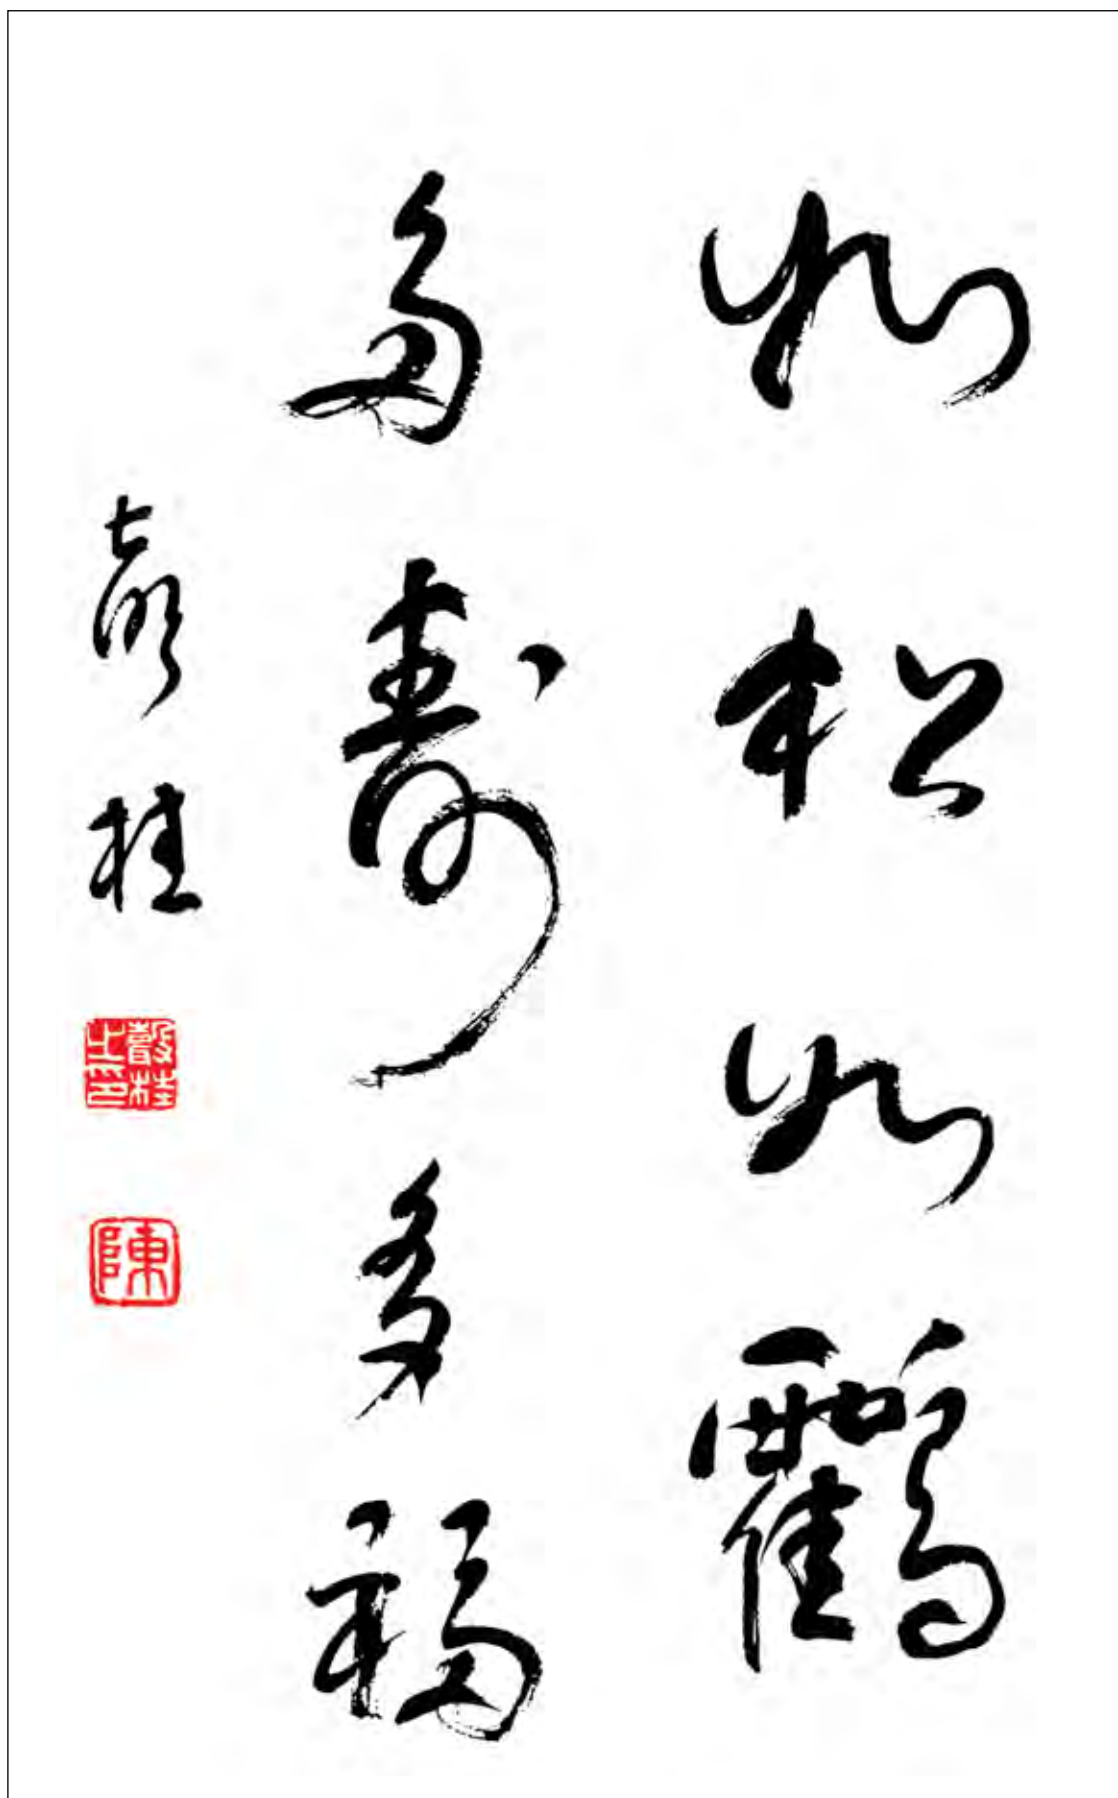 如松如鶴
多壽多福
桂
桂之印
陳